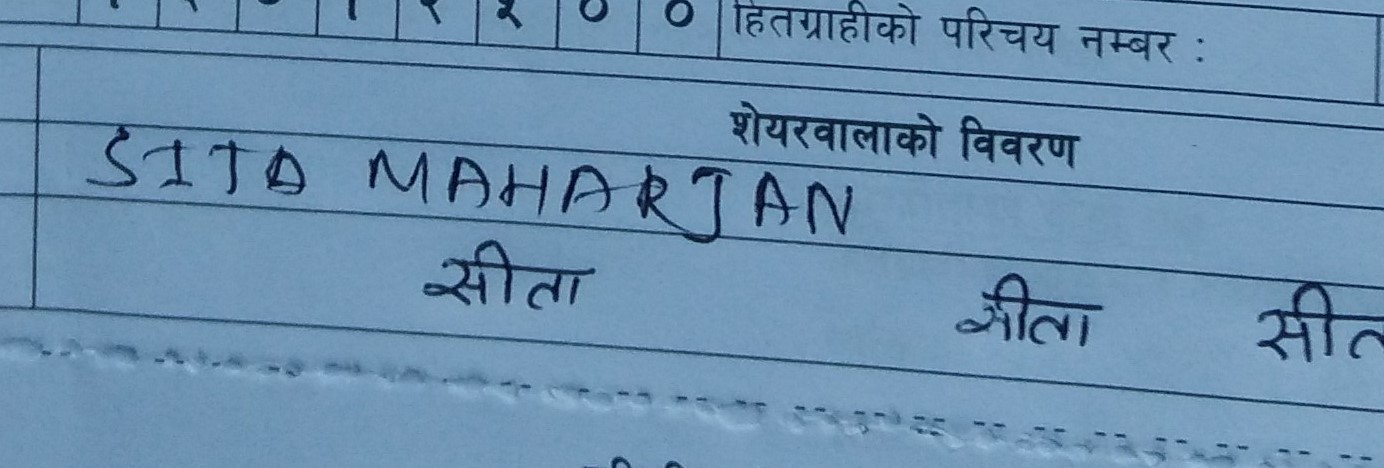 ० ० हितग्राहीको परिचय नम्बर :
शेयरवालाको विवरण
SITA MAHARJAN
सीता सीता सीत